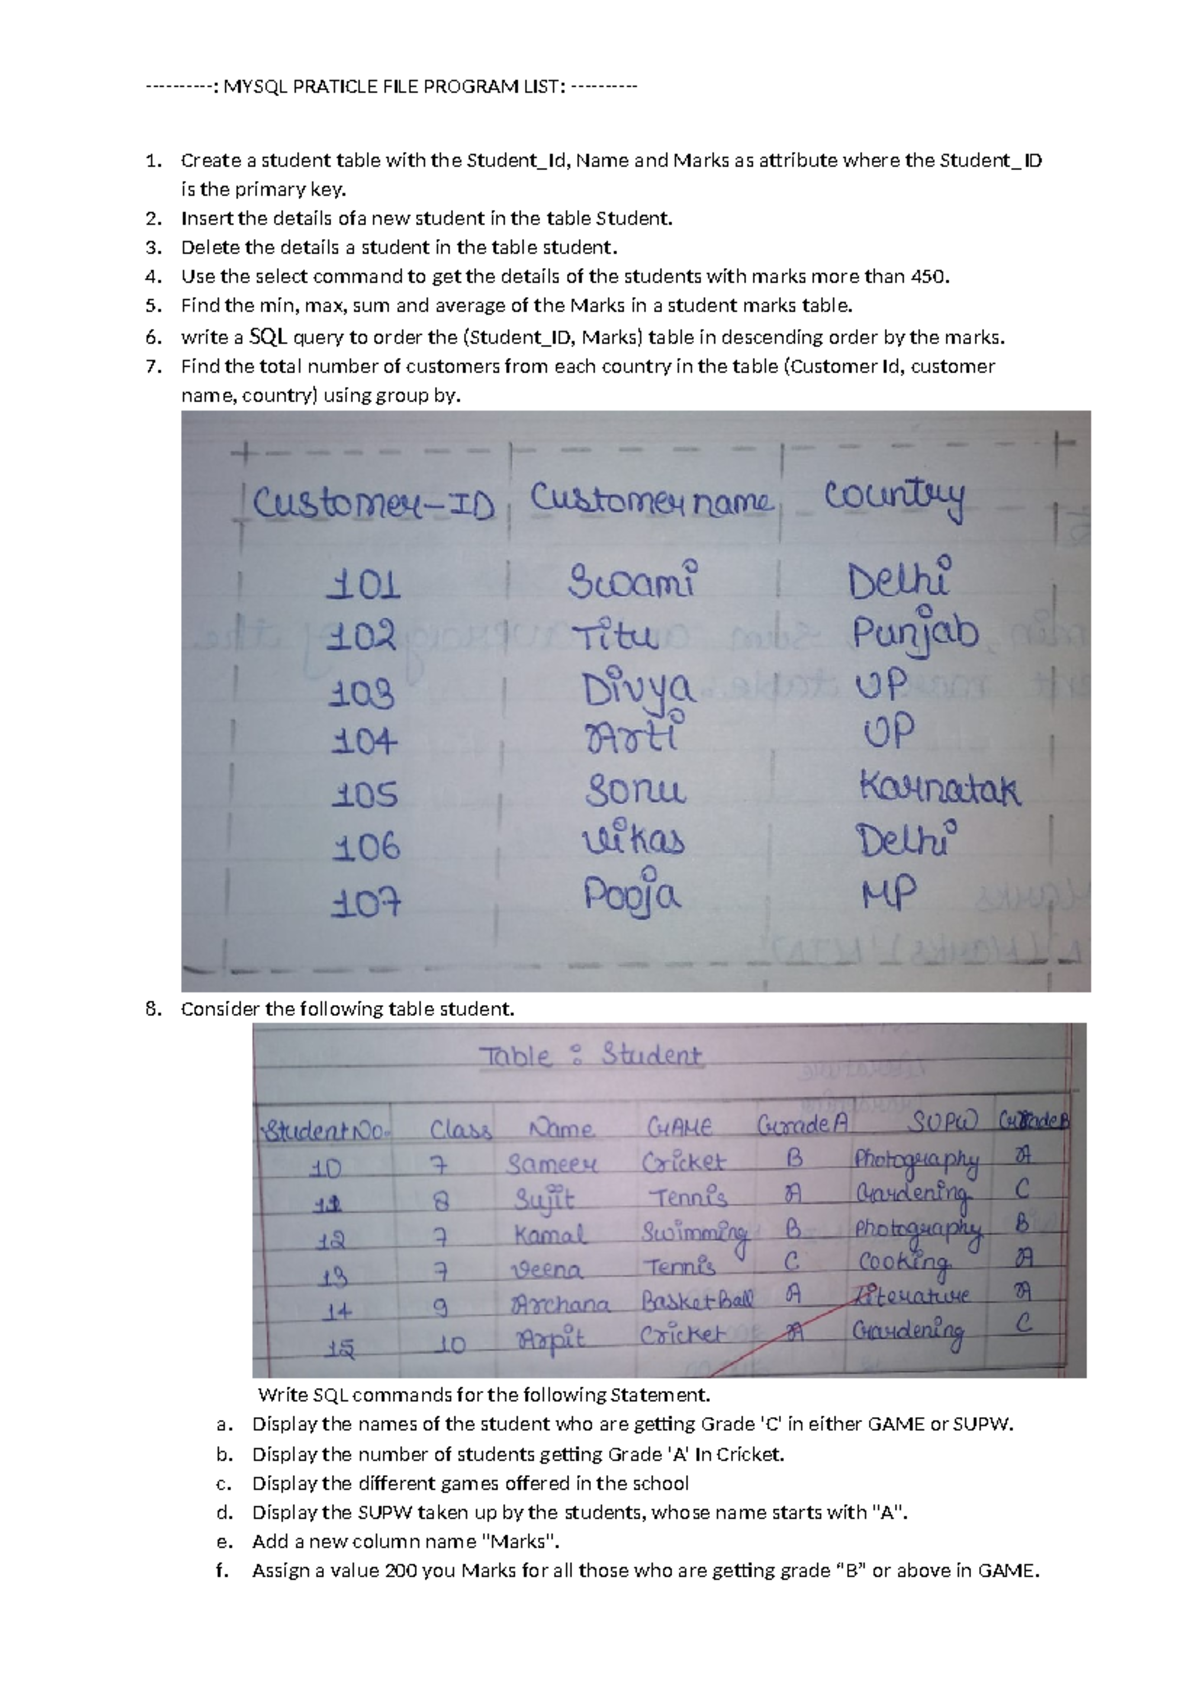 ----------: MYSQL PRATICLE FILE PROGRAM LIST: ----------
1. Create a student table with the Student_Id, Name and Marks as attribute where the Student_ID
is the primary key.
2. Insert the details ofa new student in the table Student.
3. Delete the details a student in the table student.
4. Use the select command to get the details of the students with marks more than 450.
5. Find the min, max, sum and average of the Marks in a student marks table.
6. write a SQL query to order the (Student_ID, Marks) table in descending order by the marks.
7. Find the total number of customers from each country in the table (Customer Id, customer
name, country) using group by.
Customer-ID Customer name Country
101 Swami Delhi
102 Titu Punjab
103 Divya UP
104 Arti UP
105 Sonu Karnatak
106 Vikas Delhi
107 Pooja MP
8. Consider the following table student.
Table : Student
Student No. Class Name GAME Grade A SUPW Grade B
10 7 Sameer Cricket B Photography A
11 8 Sujit Tennis A Gardening C
12 7 Kamal Swimming B Photography B
13 7 Veena Tennis C Cooking A
14 9 Archana Basket Ball A Literature A
15 10 Arpit Cricket A Gardening C
Write SQL commands for the following Statement.
a. Display the names of the student who are getting Grade 'C' in either GAME or SUPW.
b. Display the number of students getting Grade 'A' In Cricket.
c. Display the different games offered in the school
d. Display the SUPW taken up by the students, whose name starts with "A".
e. Add a new column name "Marks".
f. Assign a value 200 you Marks for all those who are getting grade "B" or above in GAME.